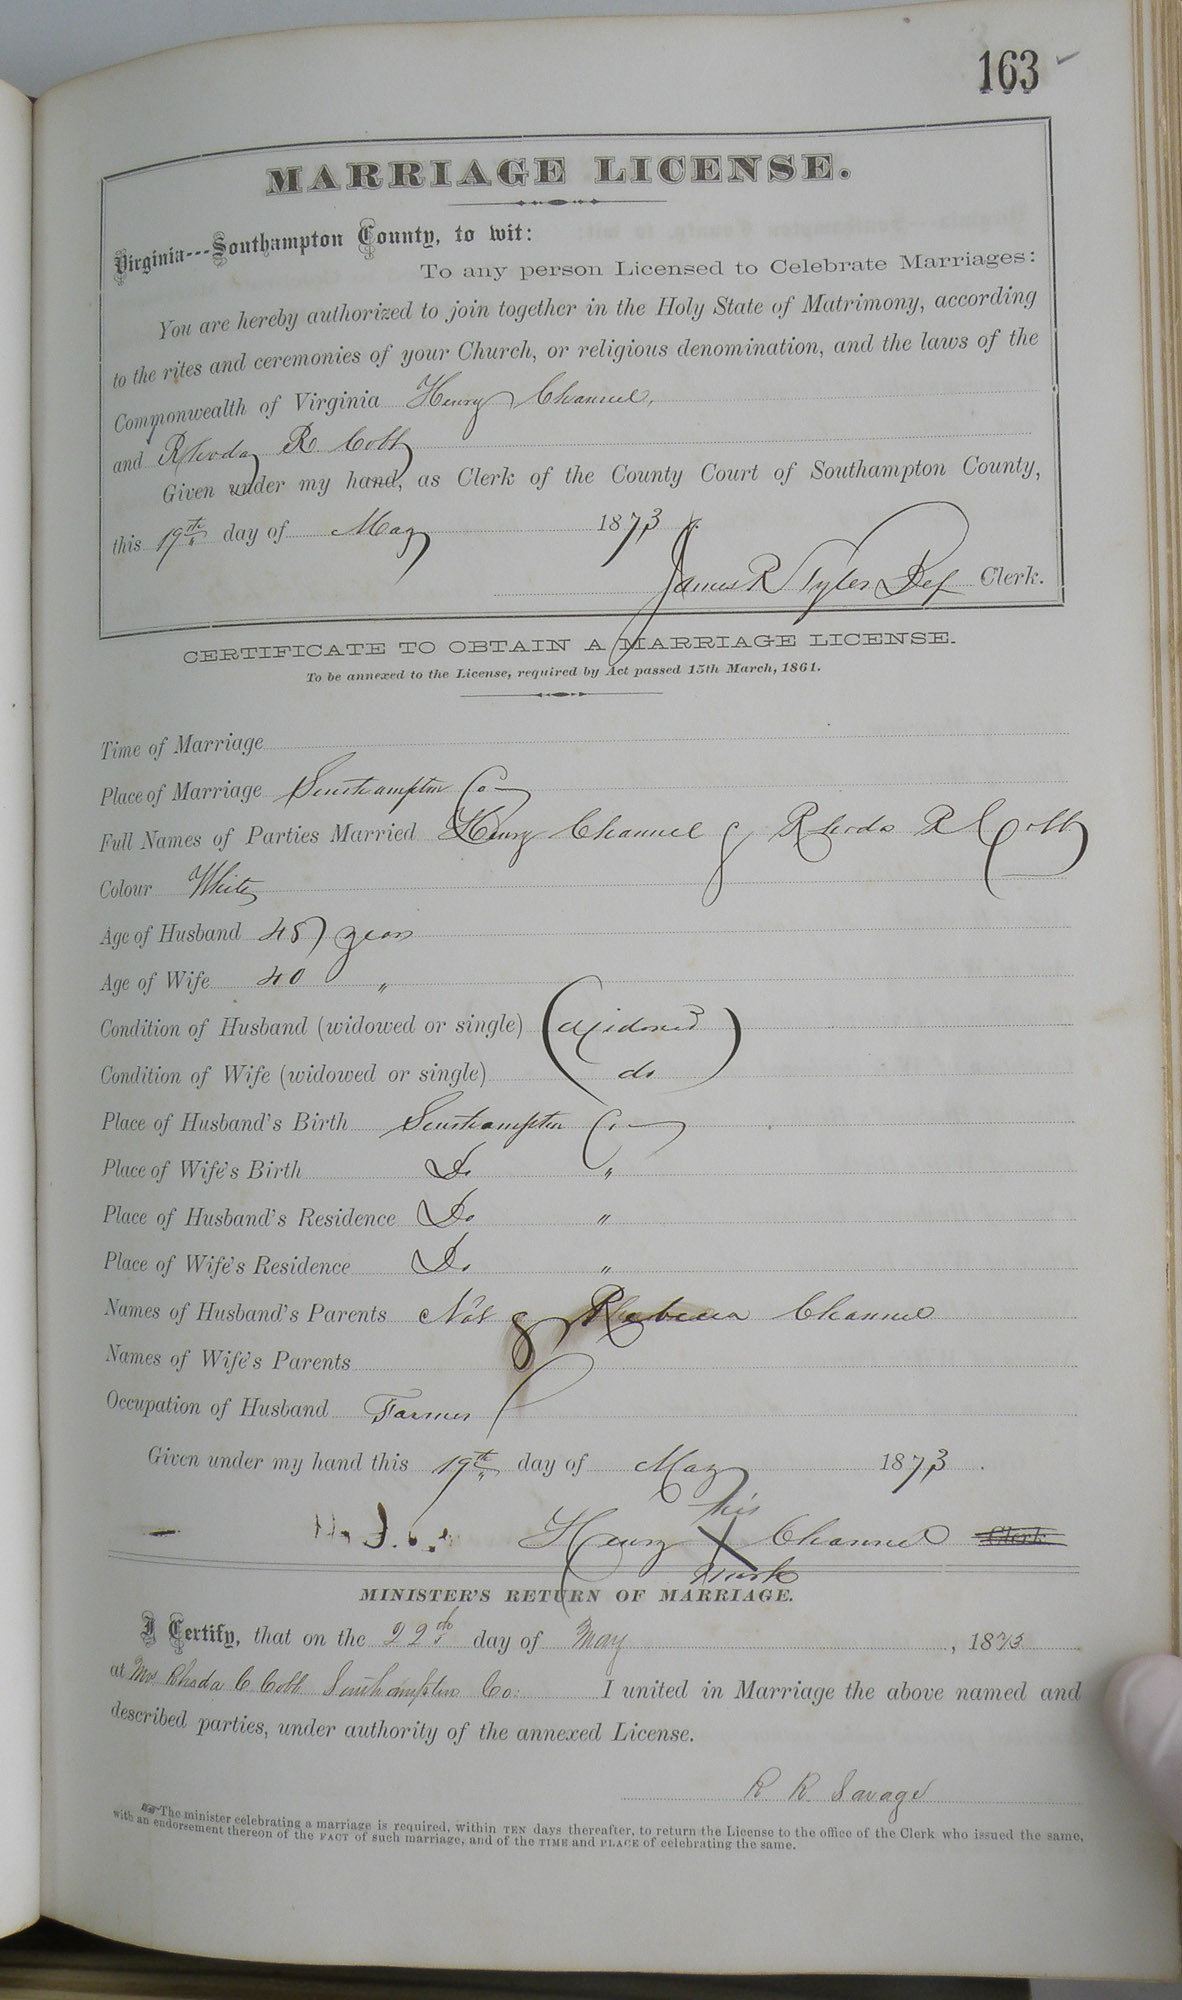 163
MARRIAGE LICENSE.
Virginia---Southampton County, to wit:
To any person Licensed to Celebrate Marriages:
You are hereby authorized to join together in the Holy State of Matrimony, according
to the rites and ceremonies of your Church, or religious denomination, and the laws of the
Commonwealth of Virginia Henry Channel,
and Rhoda R. Cobb
Given under my hand, as Clerk of the County Court of Southampton County,
this 19th day of May 1873
James R Tyler Dep Clerk.
CERTIFICATE TO OBTAIN A MARRIAGE LICENSE.
To be annexed to the License, required by Act passed 15th March, 1861.
Time of Marriage
Place of Marriage Southampton Co
Full Names of Parties Married Henry Channel & Rhoda R Cobb
Colour White
Age of Husband 45 years
Age of Wife 40 "
Condition of Husband (widowed or single) Widowed
Condition of Wife (widowed or single) do
Place of Husband's Birth Southampton Co
Place of Wife's Birth Do "
Place of Husband's Residence Do "
Place of Wife's Residence Do "
Names of Husband's Parents Nat & Rebecca Channel
Names of Wife's Parents
Occupation of Husband Farmer
Given under my hand this 19th day of May 1873.
his
Henry X Channel Clerk
mark
MINISTER'S RETURN OF MARRIAGE.
I Certify, that on the 22d day of May, 1873
at Mrs Rhoda C Cobb Southampton Co: I united in Marriage the above named and
described parties, under authority of the annexed License.
R R Savage
The minister celebrating a marriage is required, within TEN days thereafter, to return the License to the office of the Clerk who issued the same,
with an endorsement thereon of the FACT of such marriage, and of the TIME and PLACE of celebrating the same.